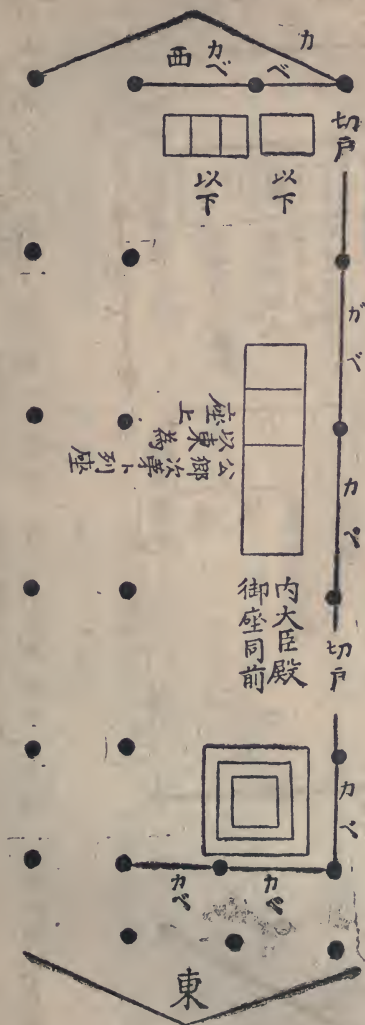 西
カベ
カベ
切戸
以下
以下
カベ
カベ
公郷次第ト列座
以東為
座上
内大臣殿
御座同前
切戸
カベ
カベ
カベ
東